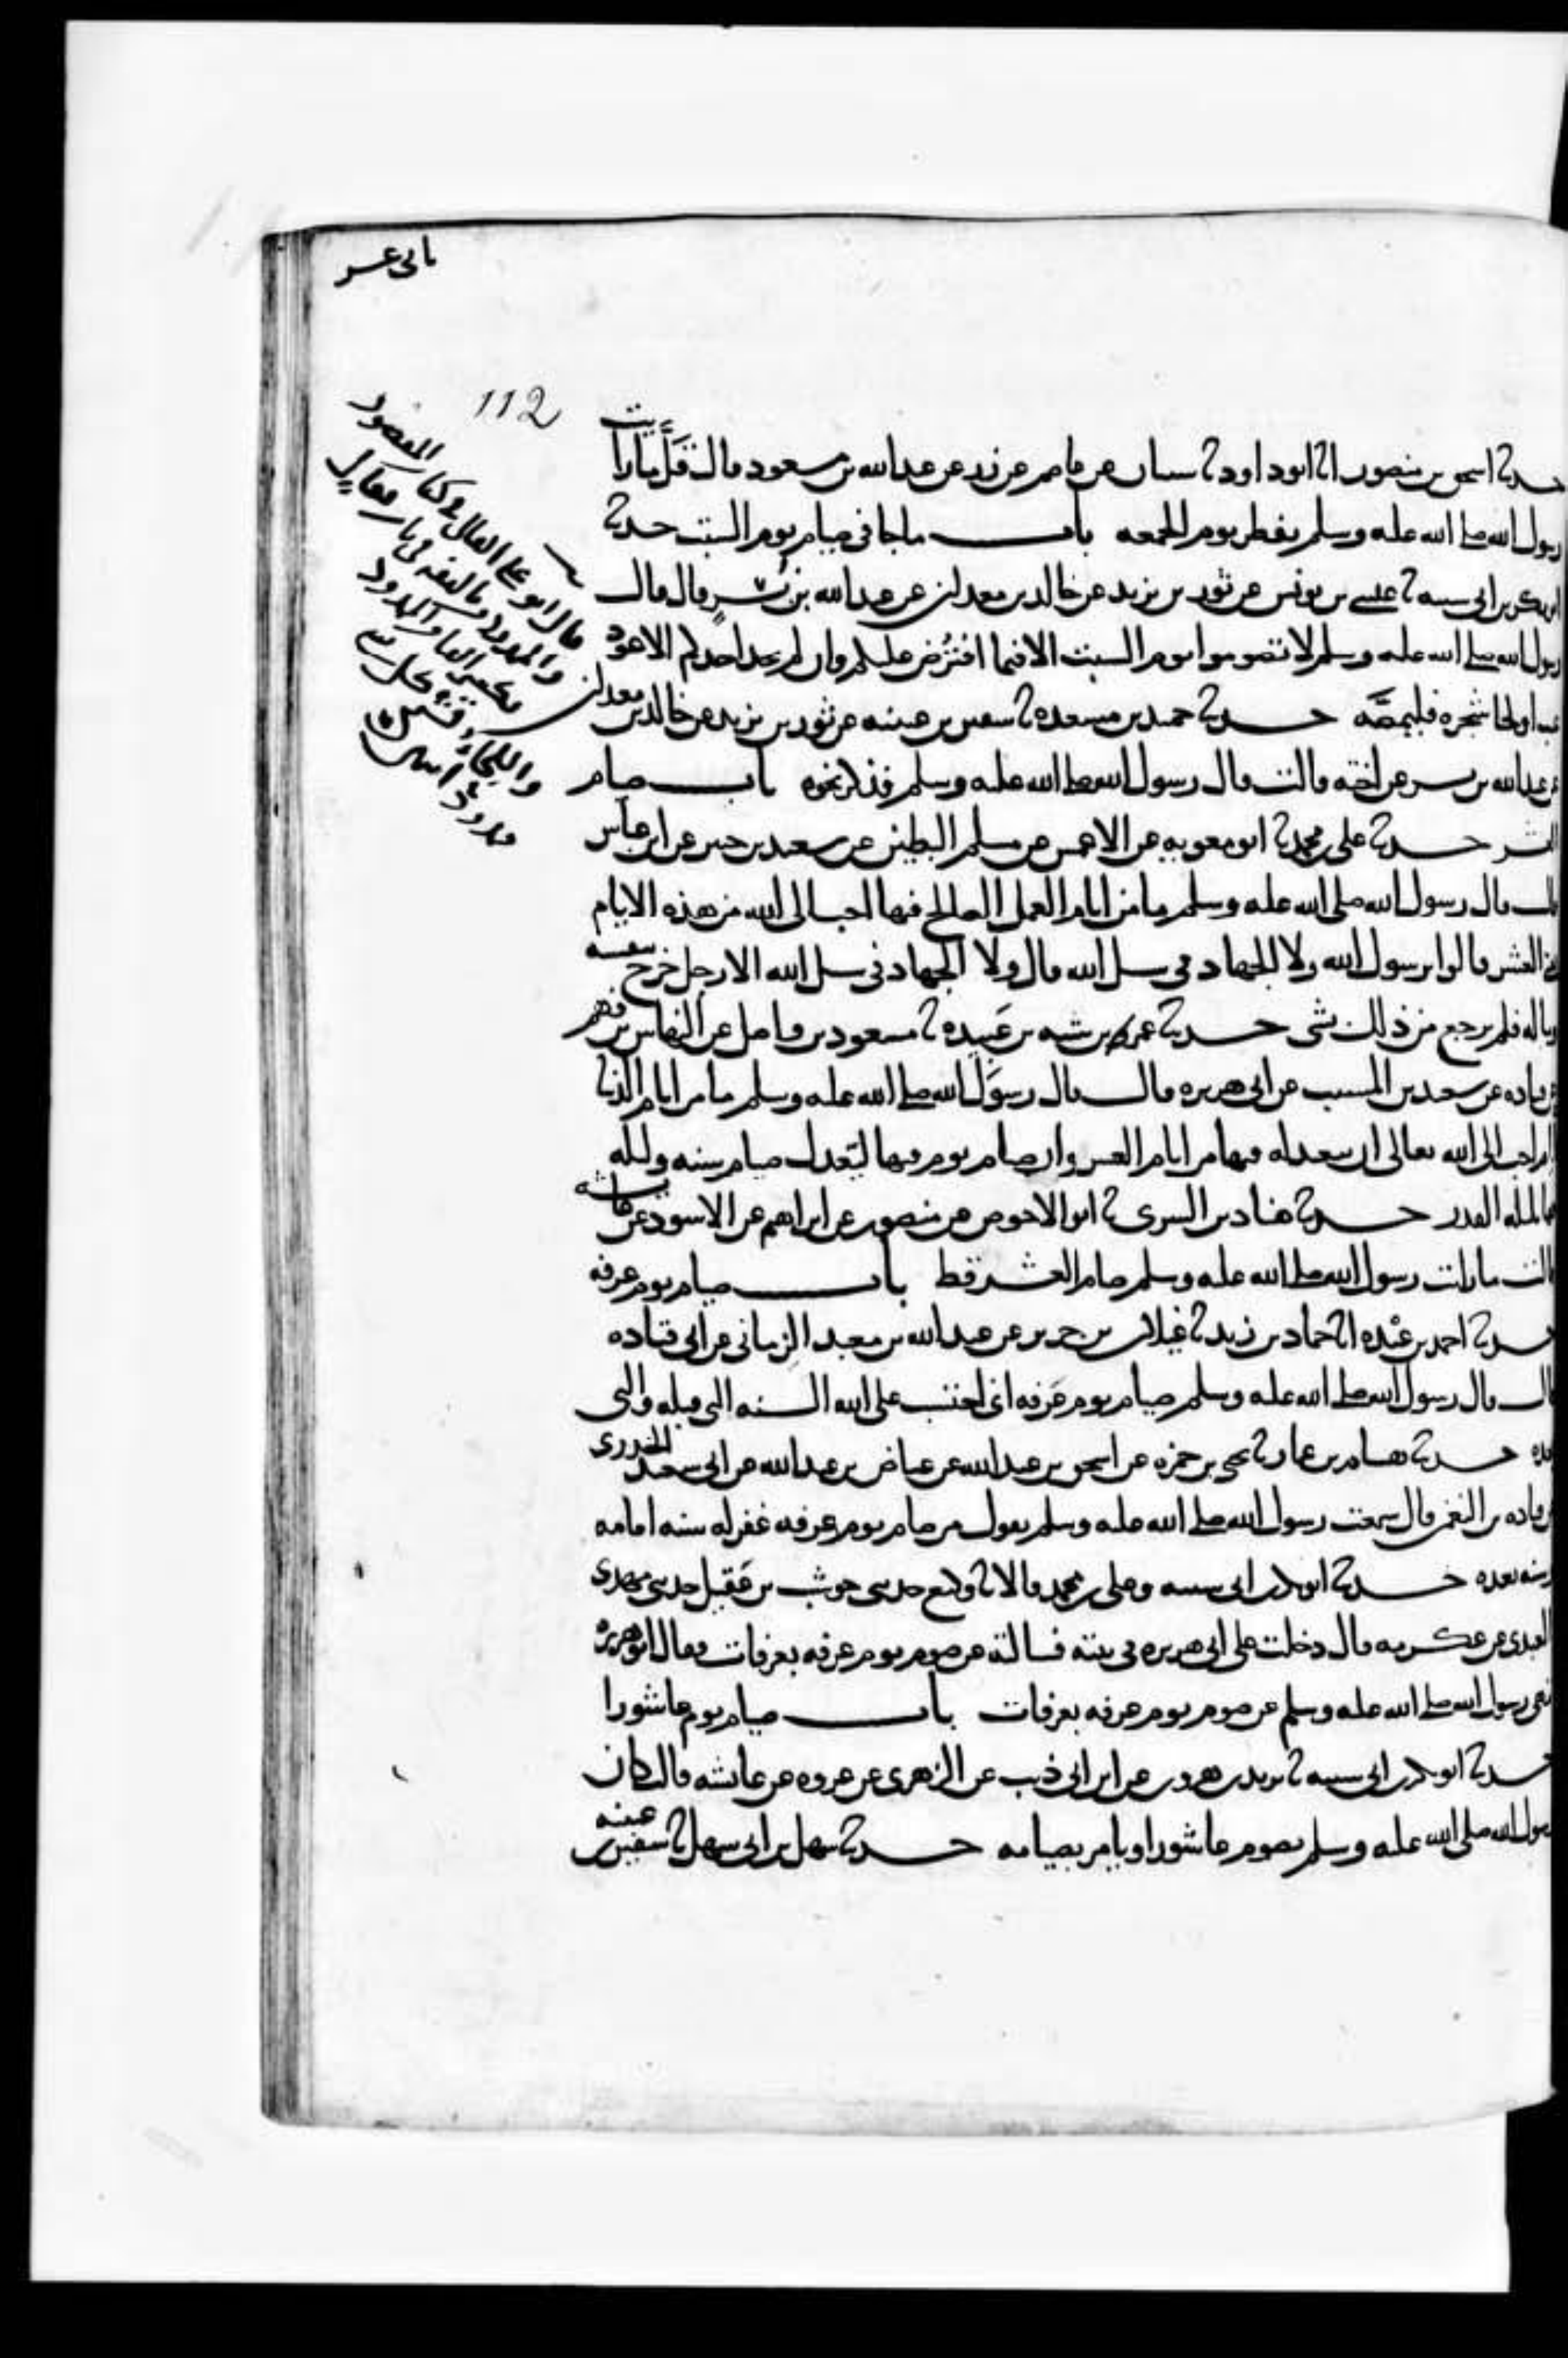 ثانى عشر
112
حدثنا اسحق بن منصور انا ابو داود ثنا شيبان عن عاصم عن زر عن عبد الله بن مسعود قال قل ما رايت
رسول الله صلى الله عليه وسلم يفطر يوم الجمعه باب ما جا فى صيام يوم السبت حدثنا
ابو بكر بن ابى شيبه ثنا عيسى بن يونس عن ثور بن يزيد عن خالد بن معدان عن عبد الله بن بسر قال قال
رسول الله صلى الله عليه وسلم لا تصوموا يوم السبت الا فيما افترض عليكم وان لم يجد احدكم الا عود
عنب او لحا شجره فليمصه حدثنا حميد بن مسعده ثنا سفين بن حبيب عن ثور بن يزيد عن خالد بن معدان
عن عبد الله بن بسر عن اخته قالت قال رسول الله صلى الله عليه وسلم فذكر نحوه باب صيام
العشر حدثنا على بن محمد ثنا ابو معويه عن الاعمش عن مسلم البطين عن سعيد بن جبير عن ابن عباس
قال قال رسول الله صلى الله عليه وسلم ما من ايام العمل الصالح فيها احب الى الله من هذه الايام
يعنى العشر قالوا يرسول الله ولا الجهاد فى سبيل الله قال ولا الجهاد فى سبيل الله الا رجل خرج بنفسه
وماله فلم يرجع من ذلك بشى حدثنا عمر بن شبه بن عبيده ثنا مسعود بن واصل عن النهاس بن قهم
عن قتاده عن سعيد بن المسيب عن ابى هريره قال قال رسول الله صلى الله عليه وسلم ما من ايام الدنيا
ايام احب الى الله تعالى ان يتعبد له فيها من ايام العشر وان صيام يوم فيها ليعدل صيام سنه وليله
فيها بليله القدر حدثنا هناد بن السرى ثنا ابو الاحوص عن منصور عن ابراهيم عن الاسود عن عائشه
قالت ما رايت رسول الله صلى الله عليه وسلم صام العشر قط باب صيام يوم عرفه
حدثنا احمد بن عبده انا حماد بن زيد ثنا غيلان بن جرير عن عبد الله بن معبد الزمانى عن ابى قتاده
قال قال رسول الله صلى الله عليه وسلم صيام يوم عرفه انى احتسب على الله السنه التى قبله والتى
بعده حدثنا هشام بن عمار ثنا يحيى بن حمزه عن اسحق بن عبد الله عن عياض بن عبد الله عن ابى سعيد الخدرى
عن قتاده بن النعمن قال سمعت رسول الله صلى الله عليه وسلم يقول من صام يوم عرفه غفر له سنه امامه
وسنه بعده حدثنا ابو بكر بن ابى شيبه وعلى بن محمد قالا ثنا وكيع حدثنى حوشب بن عقيل حدثنى مهدى
العبدى عن عكرمه قال دخلت على ابى هريره فى بيته فسالته عن صوم يوم عرفه بعرفات فقال ابو هريره
نهى رسول الله صلى الله عليه وسلم عن صوم يوم عرفه بعرفات باب صيام يوم عاشورا
حدثنا ابو بكر بن ابى شيبه ثنا يزيد بن هرون عن ابن ابى ذيب عن الزهرى عن عروه عن عائشه قالت كان
رسول الله صلى الله عليه وسلم يصوم عاشورا ويامر بصيامه حدثنا سهل بن ابى سهل ثنا سفين بن عيينه
قال ابو على القالى فى كتاب المقصور
والممدود